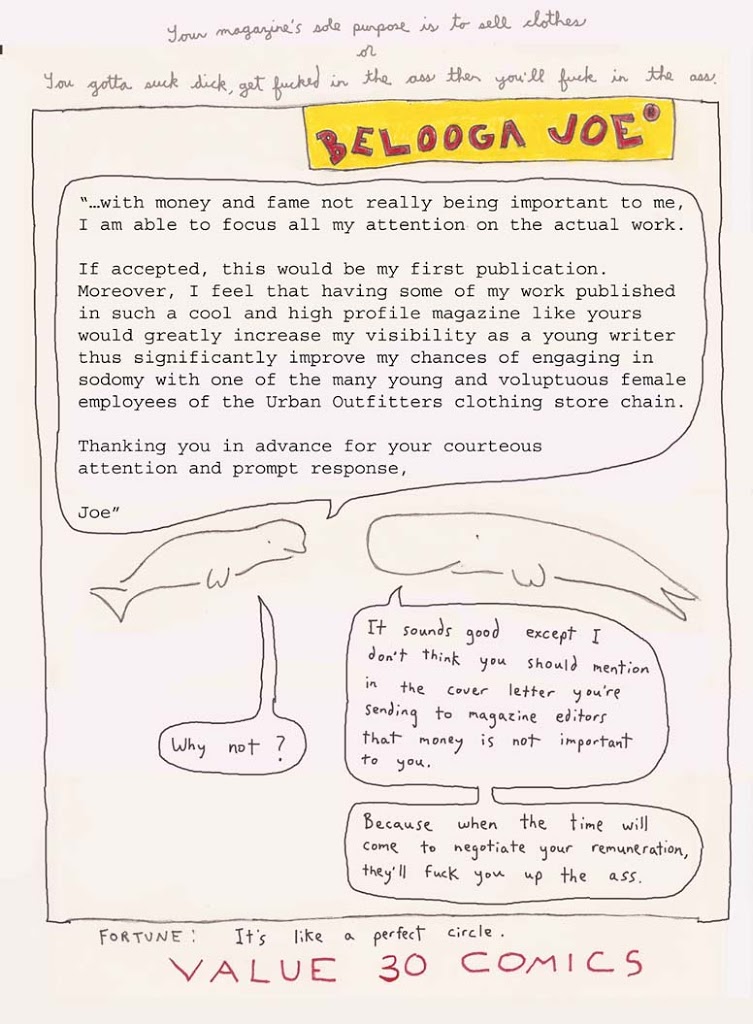 Your magazine's sole purpose is to sell clothes
or
You gotta suck dick, get fucked in the ass then you'll fuck in the ass.
BELOOGA JOE®
"…with money and fame not really being important to me,
I am able to focus all my attention on the actual work.
If accepted, this would be my first publication.
Moreover, I feel that having some of my work published
in such a cool and high profile magazine like yours
would greatly increase my visibility as a young writer
thus significantly improve my chances of engaging in
sodomy with one of the many young and voluptuous female
employees of the Urban Outfitters clothing store chain.
Thanking you in advance for your courteous
attention and prompt response,
Joe"
It sounds good except I
don't think you should mention
in the cover letter you're
sending to magazine editors
that money is not important
to you.
Why not?
Because when the time will
come to negotiate your remuneration,
they'll fuck you up the ass.
FORTUNE: It's like a perfect circle.
VALUE 30 COMICS